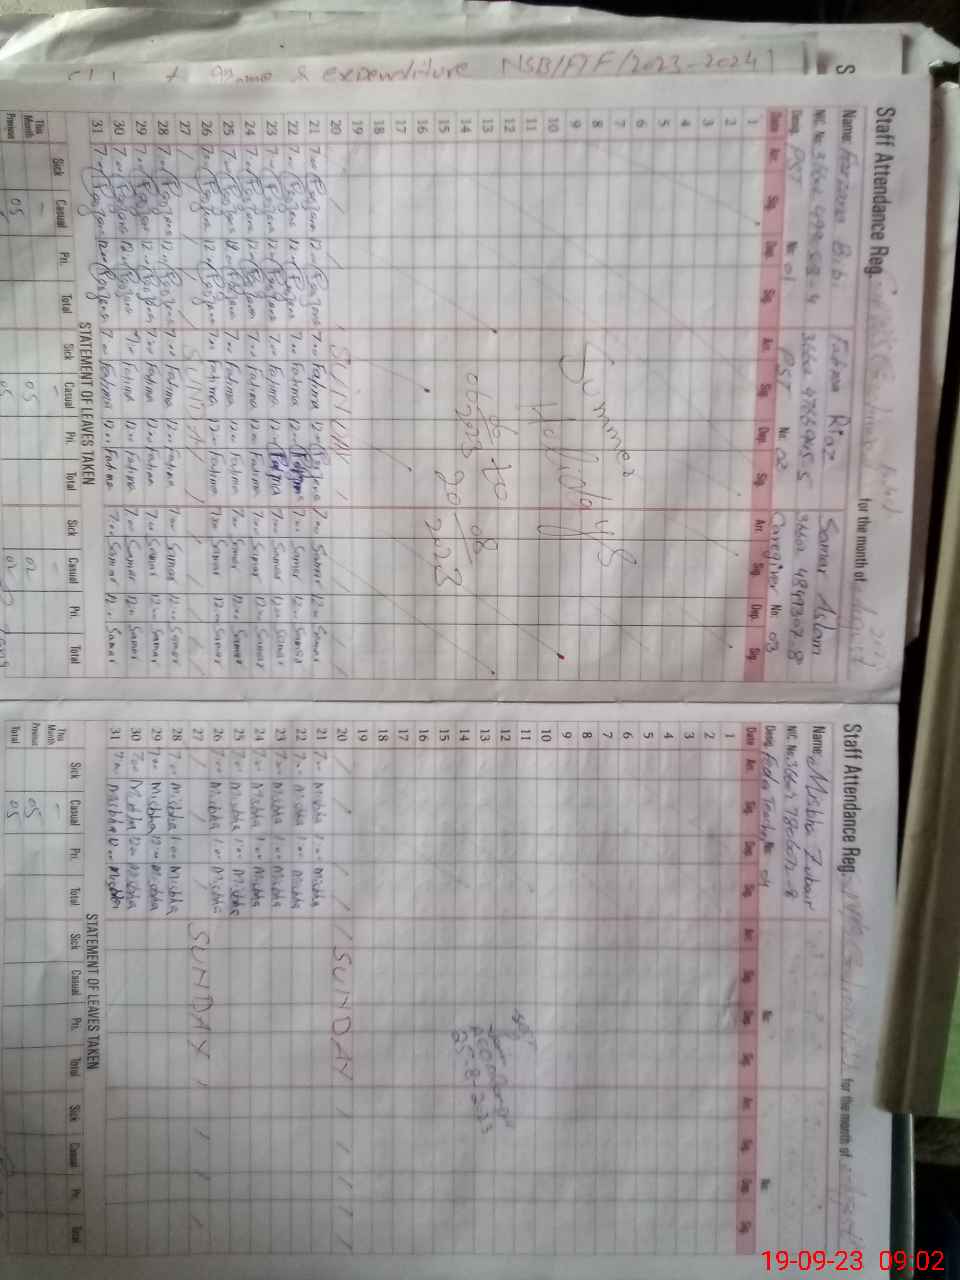 Income & expenditure NSB/FTF/2023-2024
Staff Attendance Reg.
for the month of August
Name: Farzana Bibi
Fatma Riaz
Samar Aslam
NIC No.
36602 4766945 5
36602 4849307 8
Desig. PST No: 01
PST No: 02
Caregiver No: 03
Date Arr. Sig. Dep. Sig. Arr. Sig. Dep. Sig. Arr. Sig. Dep. Sig.
1
2
3
4
5
6
7
8
9
10
11
12
13
14
15
16
17
18
19
Summer
Holidays
06 to 20-08
2023 2023
20 SUNDAY
21 7:00 Farzana 12:00 Farzana 7:00 Fatima 12:00 7:00 Samar 12:00 Samar
22 7:00 Farzana 12:00 Farzana 7:00 Fatima 12:00 Fatima 7:00 Samar 12:00 Samar
23 7:00 Farzana 12:00 Farzana 7:00 Fatima 12:00 Fatima 7:00 Samar 12:00 Samar
24 7:00 Farzana 12:00 Farzana 7:00 Fatima 12:00 Fatima 7:00 Samar 12:00 Samar
25 7:00 Farzana 12:00 Farzana 7:00 Fatima 12:00 Fatima 7:00 Samar 12:00 Samar
26 7:00 Farzana 12:00 Farzana 7:00 Fatima 12:00 Fatima 7:00 Samar 12:00 Samar
27 SUNDAY
28 7:00 Farzana 12:00 Farzana 7:00 Fatima 12:00 Fatima 7:00 Samar 12:00 Samar
29 7:00 Farzana 12:00 Farzana 7:00 Fatima 12:00 Fatima 7:00 Samar 12:00 Samar
30 7:00 Farzana 12:00 Farzana 7:00 Fatima 12:00 Fatima 7:00 Samar 12:00 Samar
31 7:00 Farzana 12:00 Farzana 7:00 Fatima 12:00 Fatma 7:00 Samar 12:00 Samar
STATEMENT OF LEAVES TAKEN
Sick Casual Pri. Total Sick Casual Pri. Total Sick Casual Pri. Total
This Month - - -
Previous 05 05 02
05 02
Staff Attendance Reg.
for the month of August
Name: Misbha Zubair
NIC No.
Desig. Teacher No: 04
No: No:
Date Arr. Sig. Dep. Sig. Arr. Sig. Dep. Sig. Arr. Sig. Dep. Sig.
1
2
3
4
5
6
7
8
9
10
11
12
13
14
15
16
17
18
19
20 SUNDAY
21 7:00 Misbha 1:00 Misbha
22 7:00 Misbha 1:00 Misbha
23 7:00 Misbha 1:00 Misbha
24 7:00 Misbha 1:00 Misbha
25 7:00 Misbha 1:00 Misbha
26 7:00 Misbha 1:00 Misbha
27 SUNDAY
28 7:00 Misbha 1:00 Misbha
29 7:00 Misbha 12:00 Misbha
30 7:00 Misbha 12:00 Misbha
31 7:00 Misbha 12:00 Misbha
STATEMENT OF LEAVES TAKEN
Sick Casual Pri. Total Sick Casual Pri. Total Sick Casual Pri. Total
This Month -
Previous 05
Total 05
19-09-23 09:02